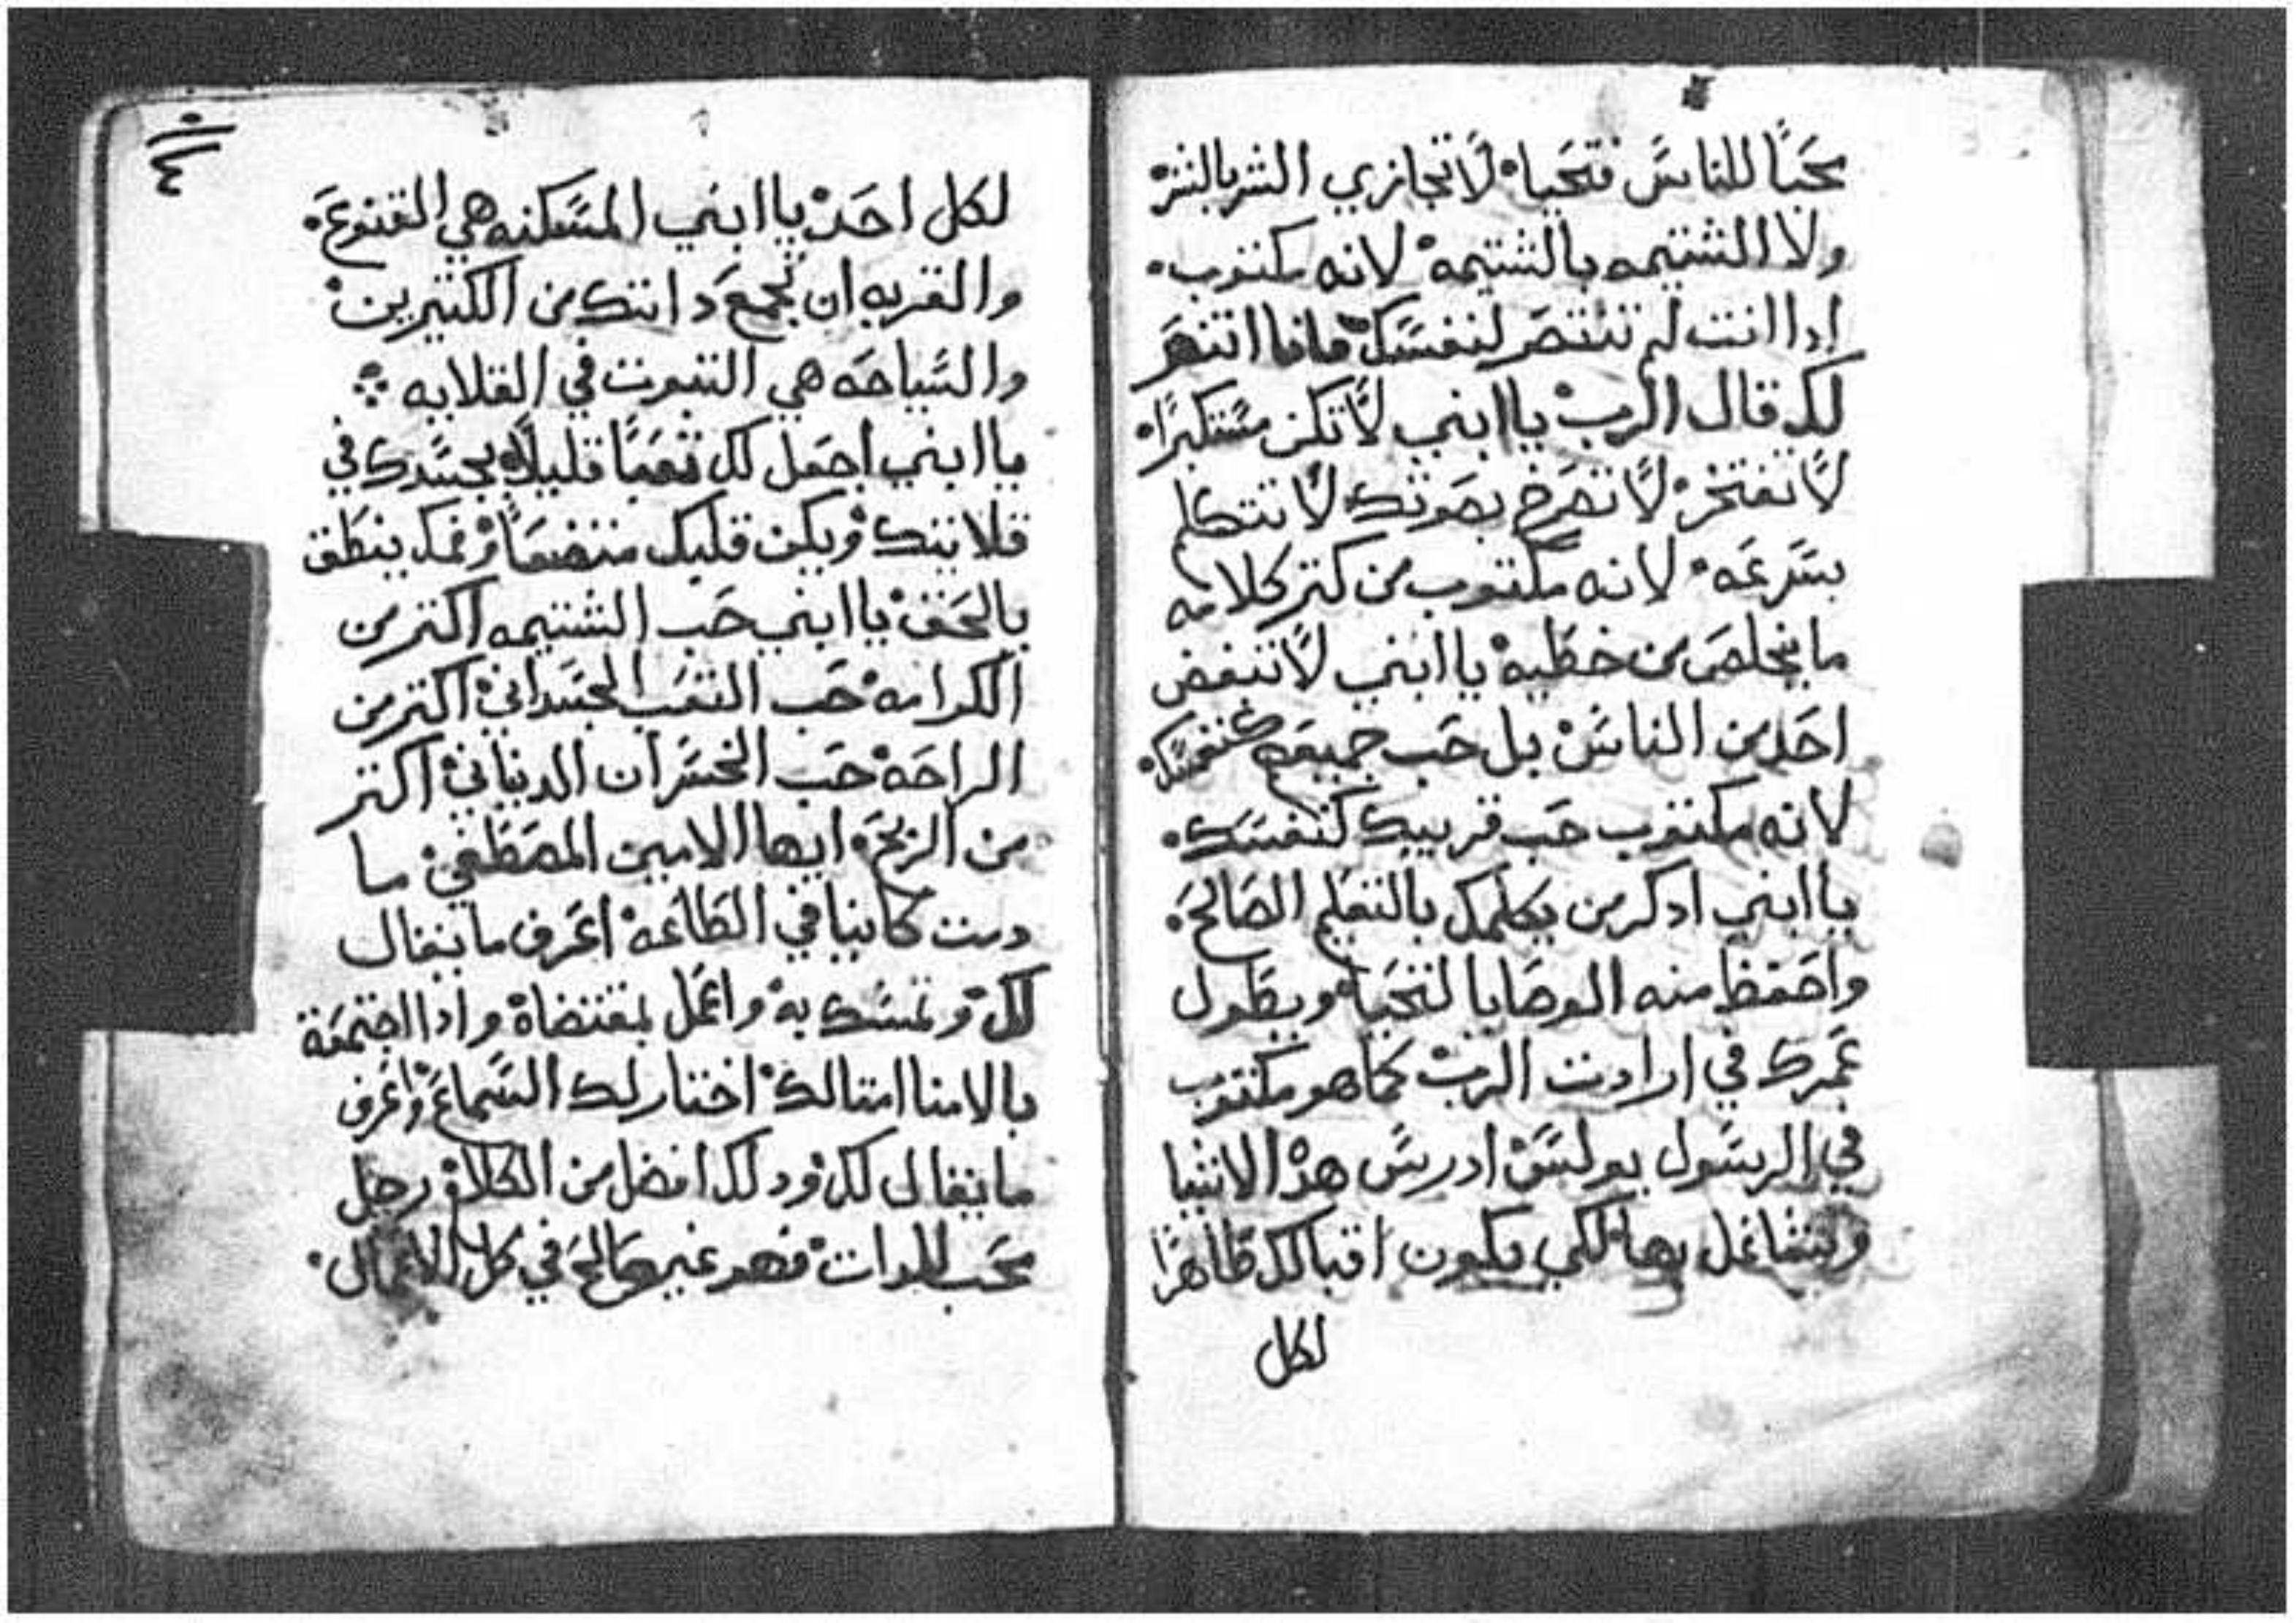 محبًا للناس فتحيا لا تجازي الشر بالشر
ولا الشتيمه بالشتيمه لانه مكتوب
ادا انت لم تنتصر لنفسك فانا انتصر
لك قال الرب يا ابني لا تكن مستكبرًا
لا تفتخر لا تصرخ بصوتك لا تتكلم
بسرعه لانه مكتوب من كتر كلامه
ما يخلص من خطيه يا ابني لا تبغض
احد من الناس بل حب جميعهم كنفسك
لانه مكتوب حب قريبك كنفسك
يا ابني ادكر من يكلمك بالتعليم الصالح
واحفظ منه الوصايا لتحيا ويطول
عمرك في ارادت الرب كما هو مكتوب
في الرسول بولس ادرس هذ الاشيا
وتشاغل بها لكي يكون اقبالك ظاهرًا
لكل
لكل احد يا ابني المسكنه هي القنوع
والغربه ان تجمع داتك من الكتيرين
والسياحه هي التبوت في القلايه
يا ابني اجعل لك تعبًا قليلًا بجسدك في
قلايتك ويكن قلبك متضعًا وفمك ينطق
بالحق يا ابني حب الشتيمه اكتر من
الكرامه حب التعب الجسداني اكتر من
الراحه حب الخسران الدنياني اكتر
من الربح ايها الامين المصطفي ما
دمت كاينا في الطاعه اعرف ما يقال
لك وتمسك به واعمل بمقتضاه وادا اجتمعة
بالامنا امتالك اختار لك السماع واعرف
ما يقال لك ودلك افضل من الكلام رجل
محب للدات فهو غير صالح في كل الاعمال